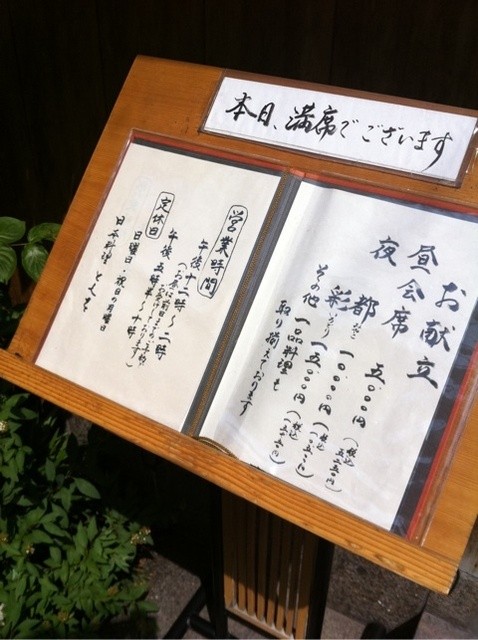 本日、満席でございます
お献立
昼会席 五、〇〇〇円 (税込 五、二五〇円)
夜 都 みやこ 一〇、〇〇〇円 (税込 一〇、五〇〇円)
彩 いろどり 一五、〇〇〇円 (税込 一五、七五〇円)
その他 一品料理も
取り揃えております
営業時間
午後十二時〜二時
(お昼は前日までのご予約
お願いしております)
午後五時半〜十時
定休日
日曜日・祝日の月曜日
日本料理 とくを